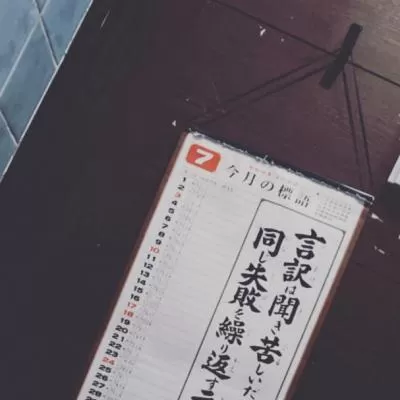 7
今月の標語
言訳は聞き苦しいだ
同じ失敗を繰り返す
1
2
3
4
5
6
7
8
9
10
11
12
13
14
15
16
17
18
19
20
21
22
23
24
25
26
27